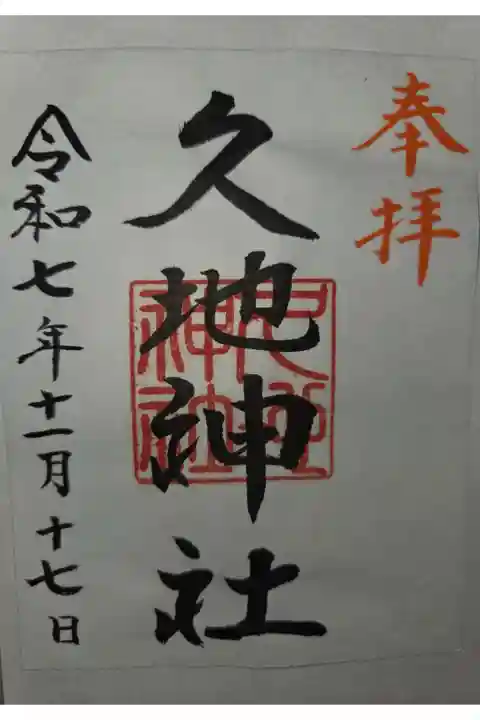 奉拝
久地神社
令和七年十一月十七日
久地神社